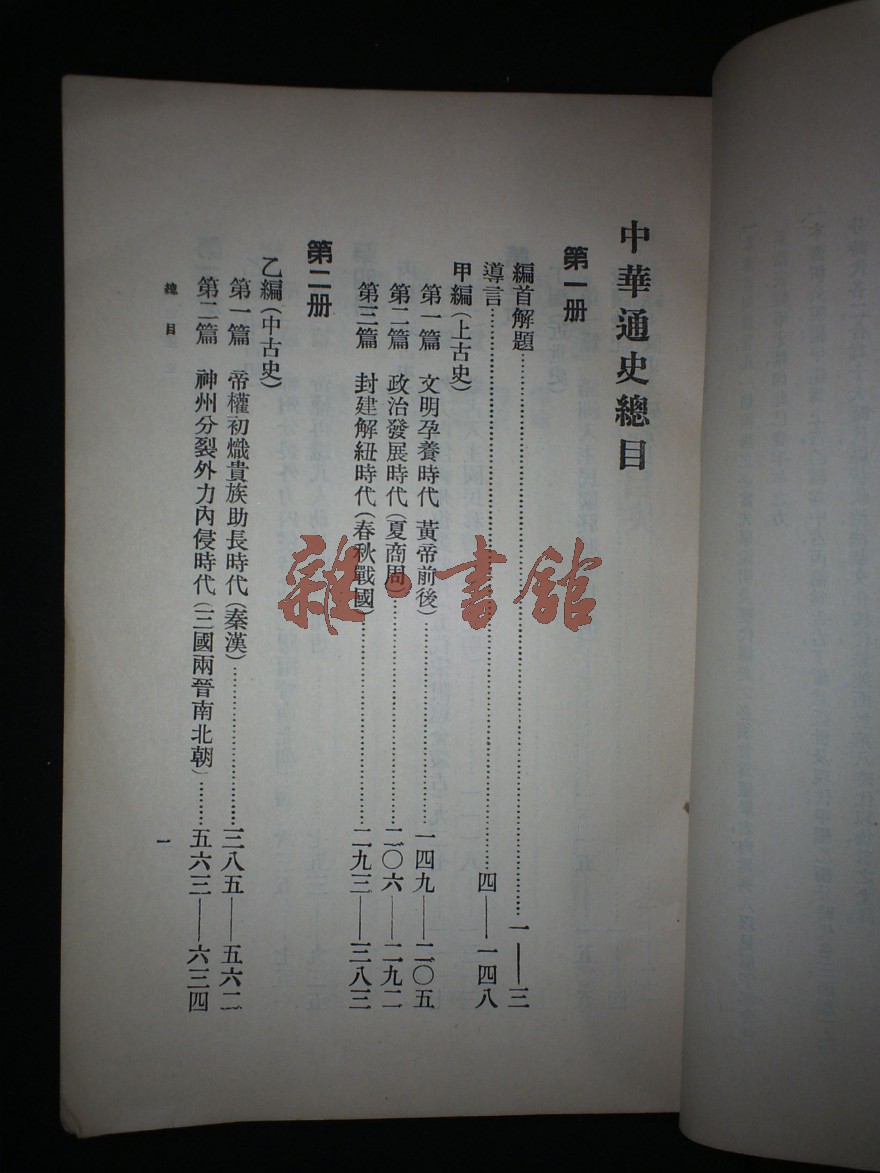 中華通史總目
第一册
編首解題……一——三
導言……四——一四八
甲編(上古史)
第一篇 文明孕養時代 黃帝前後)……一四九——二〇五
第二篇 政治發展時代(夏商周)……二〇六——二九二
第三篇 封建解紐時代(春秋戰國)……二九三——三八三
第二册
乙編(中古史)
第一篇 帝權初熾貴族助長時代(秦漢)……三八五——五六二
第二篇 神州分裂外力內侵時代(三國兩晉南北朝)……五六三——六三四
總目
一
雜·書館